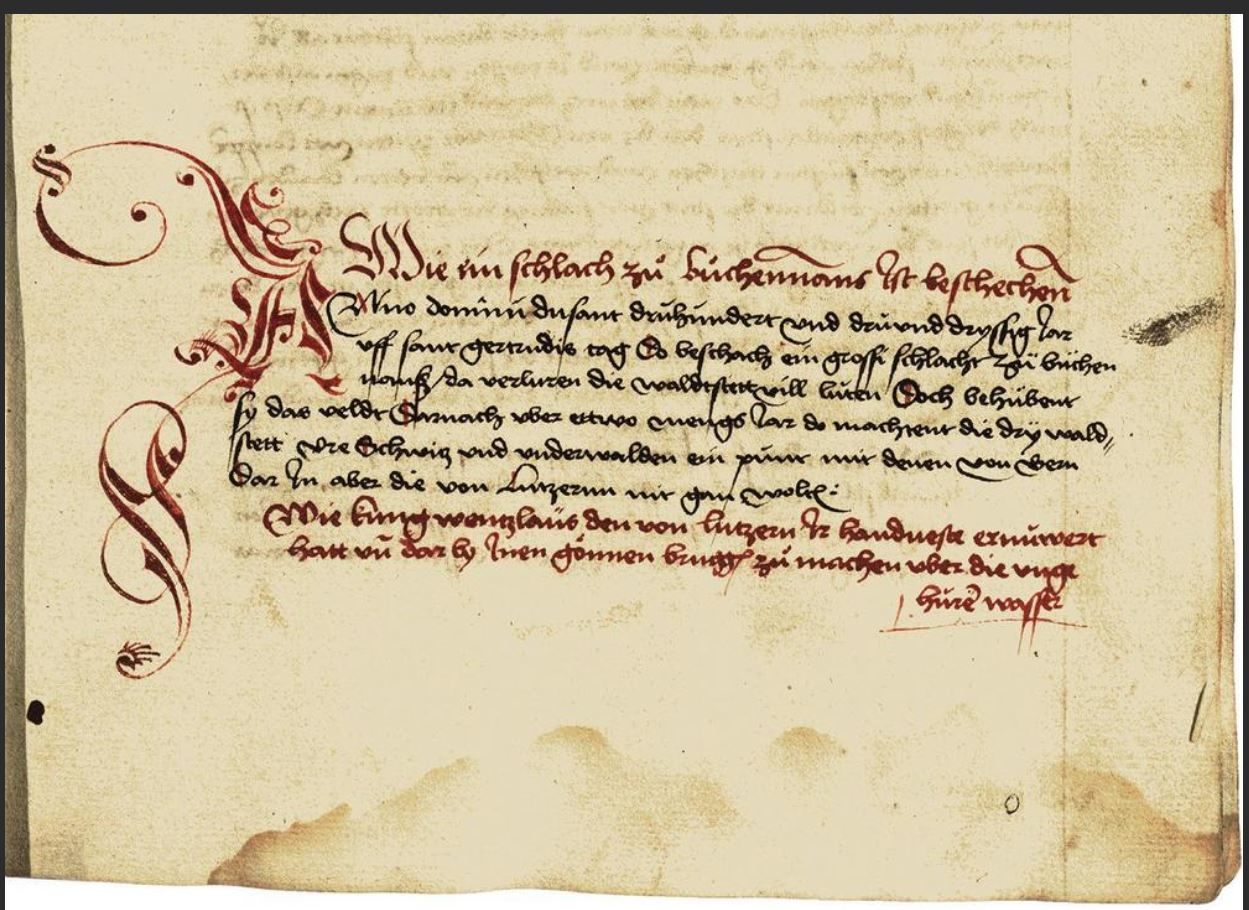 Wie ein schlach zů bůchennans Ist beschechen
Anno domini dusant druhundert vnd drü vnd dryssig Jar
vff sant gertrudis tag Do beschach ein grosse schlacht zů bůchen
nanß / da verluren die waldtstett vill lüten Doch behübent
sy das veldt Darnach vber ettwo mengs Jar do machtent die dry wald„
stett vre Schwitz vnd vnderwalden ein punt mit denen von Bern
Dar In aber die von Lutzernn nit gan woltt :
Wie küng wentzlaüs den von lutzern Ir handueste ernüwert
hatt vn̄ dar by Inen gönnen brugg zů machen vber die unge
hürē wasser